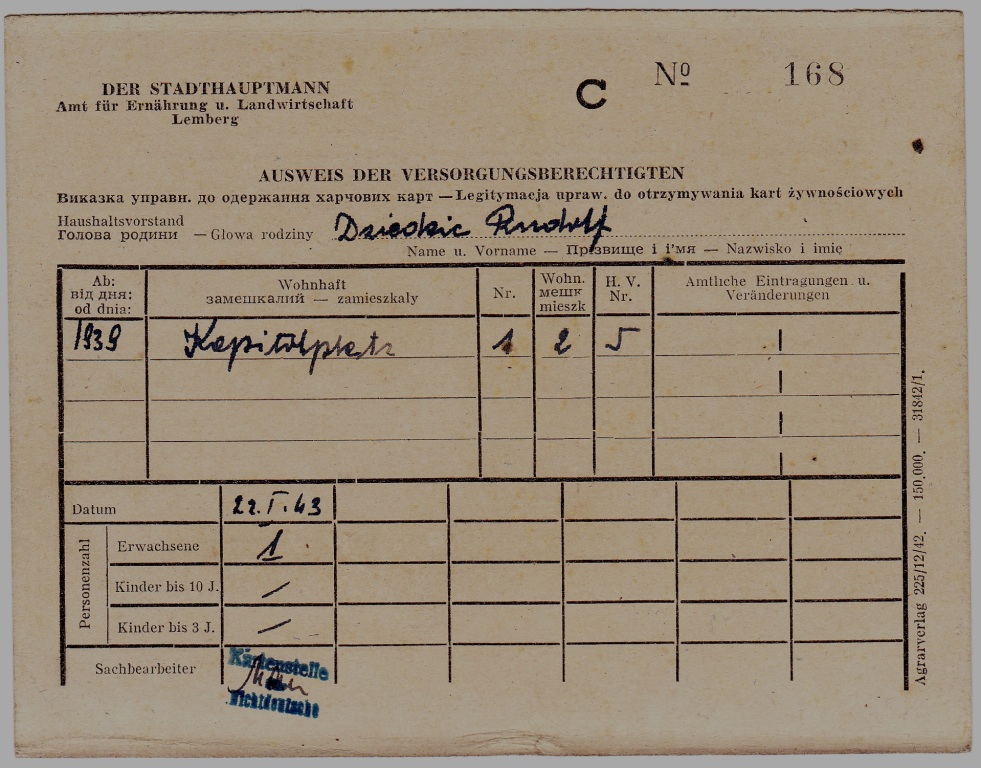 DER STADTHAUPTMANN
Amt für Ernährung u. Landwirtschaft
Lemberg
C
Nº 168
AUSWEIS DER VERSORGUNGSBERECHTIGTEN
Виказка управн. до одержання харчових карт — Legitymacja upraw. do otrzymywania kart żywnościowych
Haushaltsvorstand
Голова родини — Głowa rodziny Dziedzic Rudolf
Name u. Vorname — Прізвище і і'мя — Nazwisko i imię
Ab:
від дня:
od dnia:
Wohnhaft
замешкалий — zamieszkały
Nr.
Wohn.
мешк
mieszk
H. V.
Nr.
Amtliche Eintragungen u.
Veränderungen
1939 Kapitolplatz 1 2 5
Datum 22.I.43
Personenzahl
Erwachsene 1
Kinder bis 10 J. —
Kinder bis 3 J. —
Sachbearbeiter
Kartenstelle
Nichtdeutsche
Agrarverlag 225/12/42. — 150,000. — 31842/1.